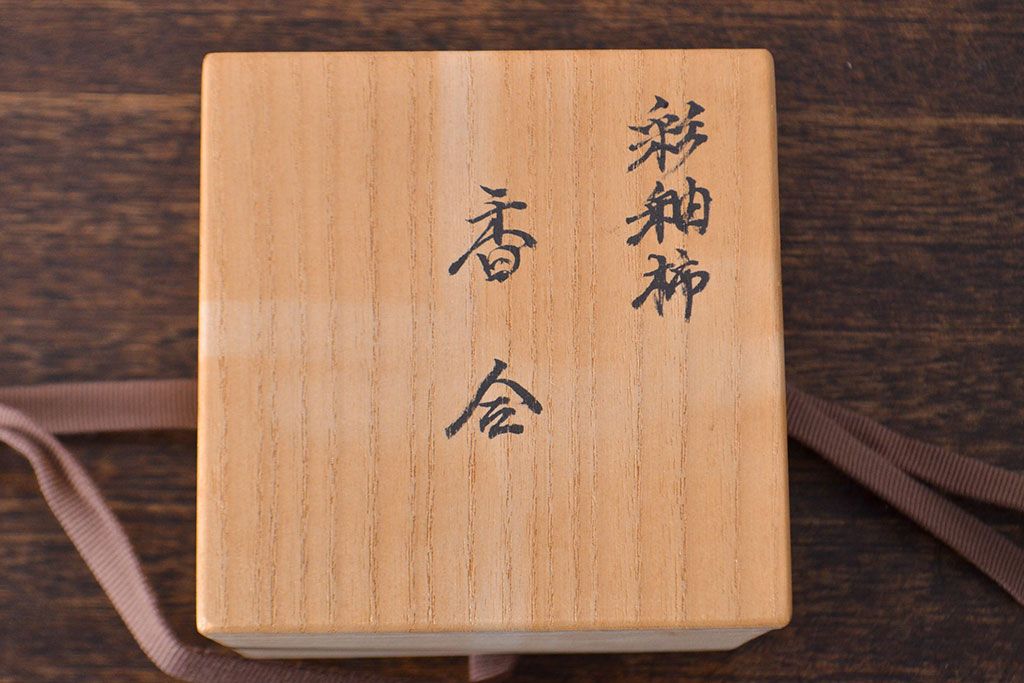 彩釉柿
香合